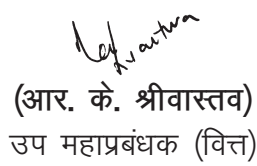 (आर. के. श्रीवास्तव)
उप महाप्रबंधक (वित्त)